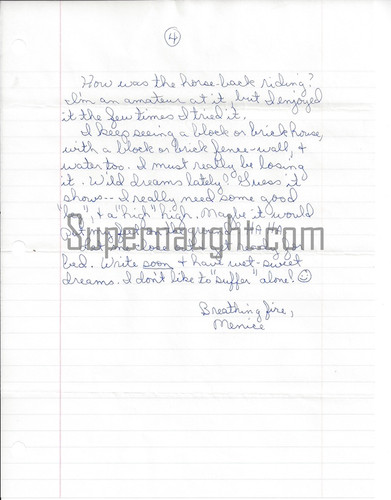 4
How was the horse-back riding?
I'm an amateur at it, but I enjoyed
it the few times I tried it.
I keep seeing a block or brick house,
with a block or brick fence-wall, &
water too. I must really be losing
it. Wild dreams lately? Guess it
shows-- I really need some good
& a "high" high. Maybe it would
put my on the ground. HA HA
Supernaught.com
close get ready for
bed. Write soon & have wet-sweet
dreams. I don't like to "suffer" alone! ☺
Breathing fire,
Menice